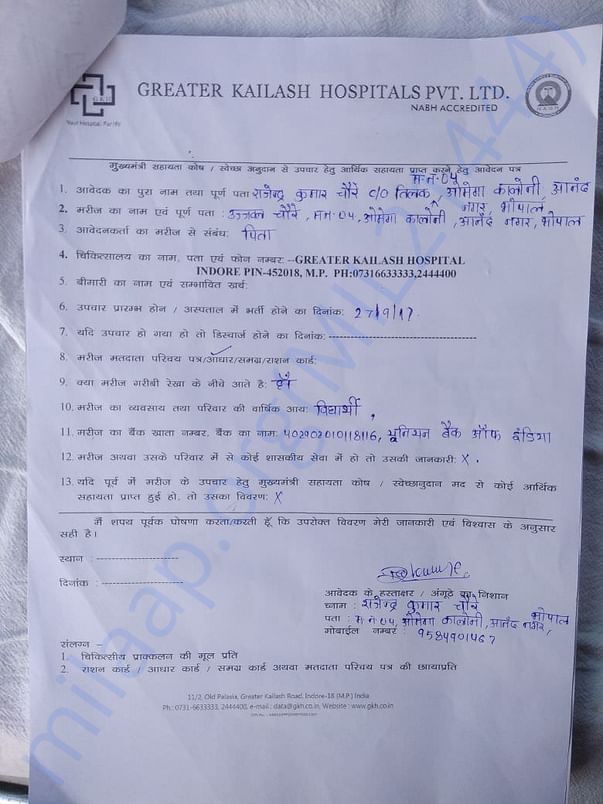 GKH
Your Hospital, For life
GREATER KAILASH HOSPITALS PVT. LTD.
NABH ACCREDITED
मुख्यमंत्री सहायता कोष / स्वेच्छा अनुदान से उपचार हेतु आर्थिक सहायता प्राप्त करने हेतु आवेदन पत्र
म.न.04
1. आवेदक का पुरा नाम तथा पूर्ण पता राजेन्द्र कुमार चौरे C/O तिलक, ओमेगा कालोनी, आनंद
नगर, भोपाल
2. मरीज का नाम एवं पूर्ण पता : उज्जवल चौरे, म.न 04, ओमेगा कालोनी, आनंद नगर, भोपाल
3. आवेदनकर्ता का मरीज से संबंध: पिता
4. चिकित्सालय का नाम, पता एवं फोन नम्बर: --GREATER KAILASH HOSPITAL
INDORE PIN-452018, M.P. PH:07316633333,2444400
5. बीमारी का नाम एवं सम्भावित खर्च:
6. उपचार प्रारम्भ होन / अस्पताल में भर्ती होने का दिनांक: 27/9/17.
7. यदि उपचार हो गया हो तो डिस्चार्ज होने का दिनांक: ------------------------------------
8. मरीज मतदाता परिचय पत्र/आधार/समग्र/राशन कार्ड:
9. क्या मरीज गरीबी रेखा के नीचे आते है: है
10. मरीज का व्यवसाय तथा परिवार की वार्षिक आय: विद्यार्थी ,
11. मरीज का बैंक खाता नम्बर, बैंक का नाम: 402902010118116, यूनियन बैंक ऑफ इंडिया
12. मरीज अथवा उसके परिवार में से कोई शासकीय सेवा में हो तो उसकी जानकारी: X .
13. यदि पूर्व में मरीज के उपचार हेतु मुख्यमंत्री सहायता कोष / स्वेच्छानुदान मद से कोई आर्थिक
सहायता प्राप्त हुई हो, तो उसका विवरण: X
मैं शपथ पूर्वक घोषणा करता/करती हूँ कि उपरोक्त विवरण मेरी जानकारी एवं विश्वास के अनुसार
सही है।
स्थान : --------------------
दिनांक : --------------------
आवेदक के हस्ताक्षर / अंगूठे का निशान
नाम : राजेन्द्र कुमार चौरे
पता : म न 04, ओमेगा कालोनी, आनंद नगर, भोपाल
मोबाईल नम्बर : 9584901467
संलग्न –
1. चिकित्सीय प्राक्कलन की मूल प्रति
2. राशन कार्ड / आधार कार्ड / समग्र कार्ड अथवा मतदाता परिचय पत्र की छायाप्रति
11/2, Old Palasia, Greater Kailash Road, Indore-18 (M.P.) India
Ph.: 0731-6633333, 2444400, e-mail : data@gkh.co.in, Website : www.gkh.co.in